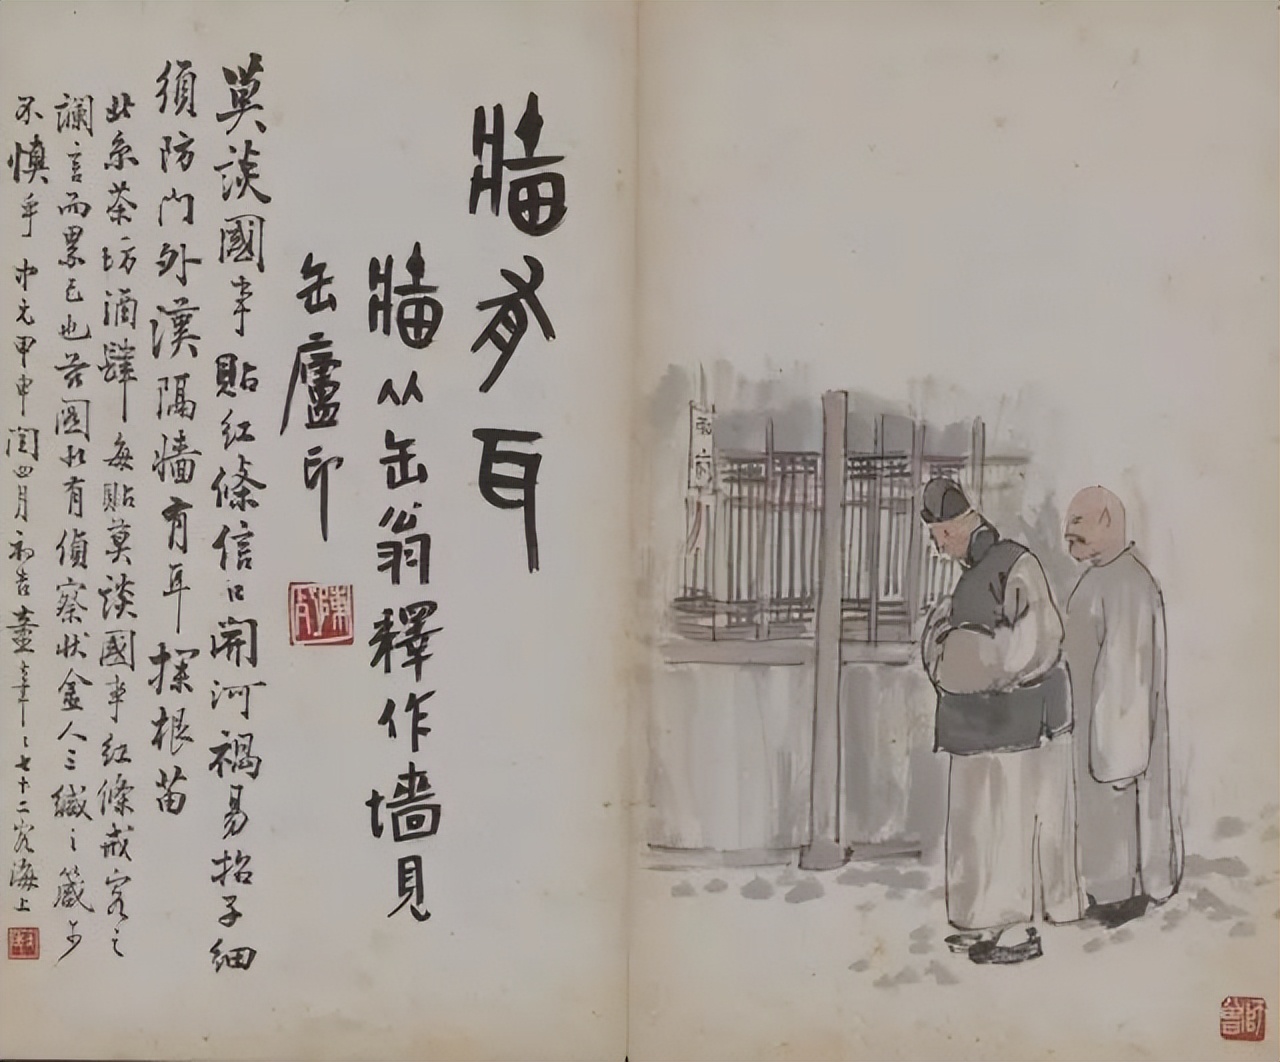 牆有耳
牆从缶翁釋作墻見
缶廬印
莫談國事貼紅條信口開河禍易招子細
須防門外漢隔牆有耳探根苗
此系茶坊酒肆每貼莫談國事紅條戒客之
讕言而累己也圖有偵察狀金人三緘之箴可
不慎乎中元甲申閏四月初吉年七十二客海上
雨前
師曾